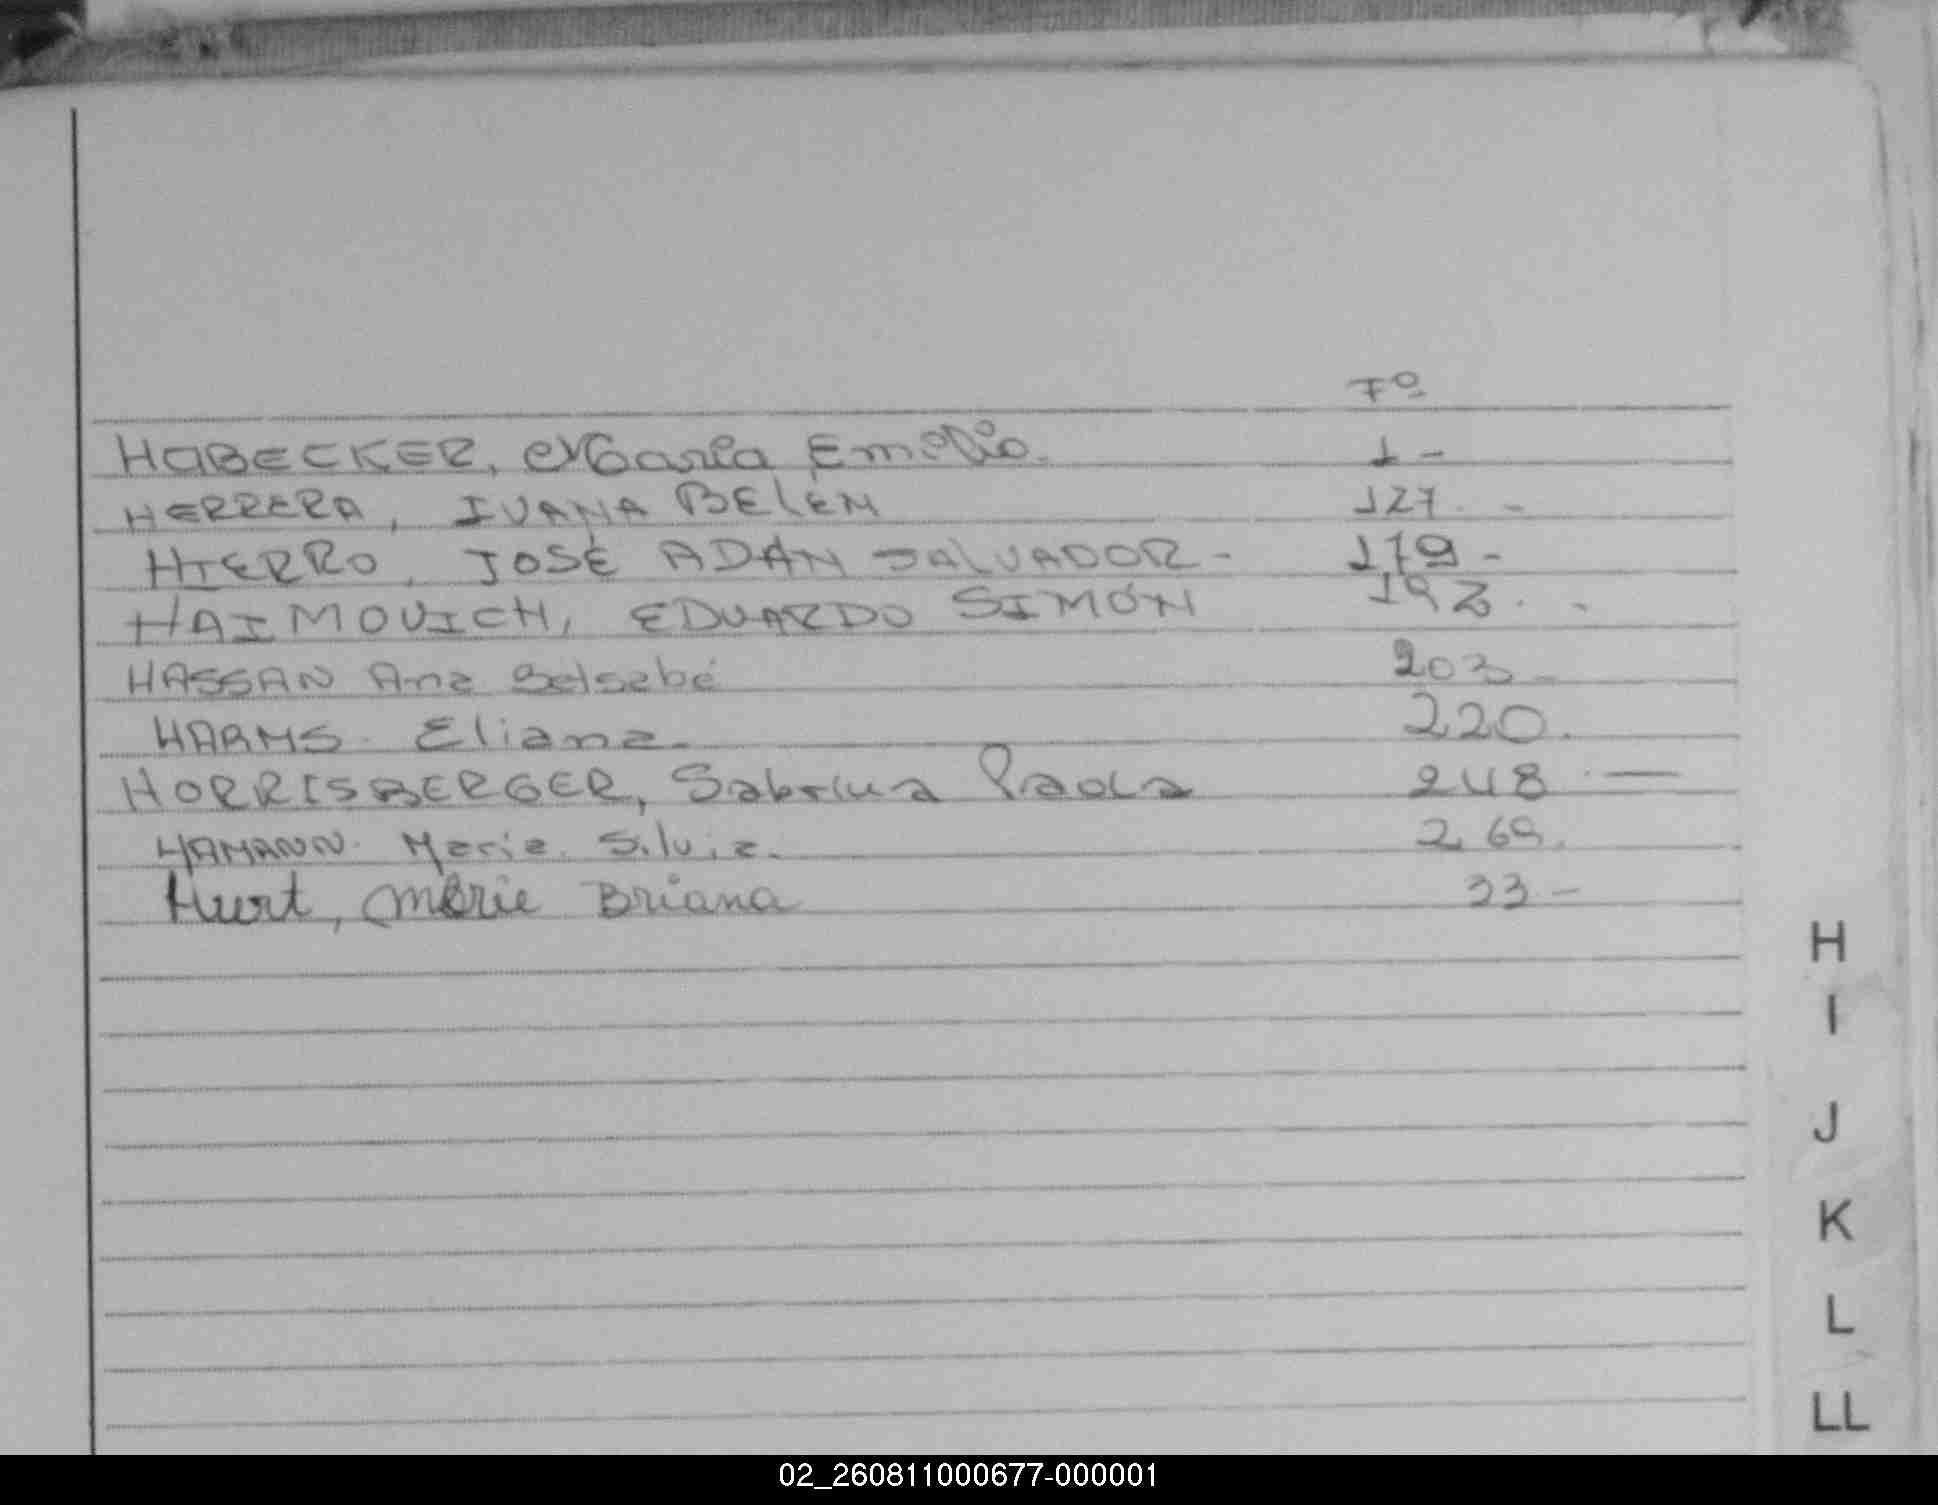 Fº
HABECKER, María Emilia. 1 -
HERRERA, IVANA BELÉN 127. -
HIERRO, JOSÉ ADÁN SALVADOR - 179 -
HAIMOVICH, EDUARDO SIMÓN 193. -
HASSAN Ana Betsabé 203 -
HARMS. Eliana. 220.
HORRISBERGER, Sabrina Paola 248. —
HAMANN. María. Silvia. 269.
Hurt, Marie Briana 33 -
H
I
J
K
L
LL
02_260811000677-000001